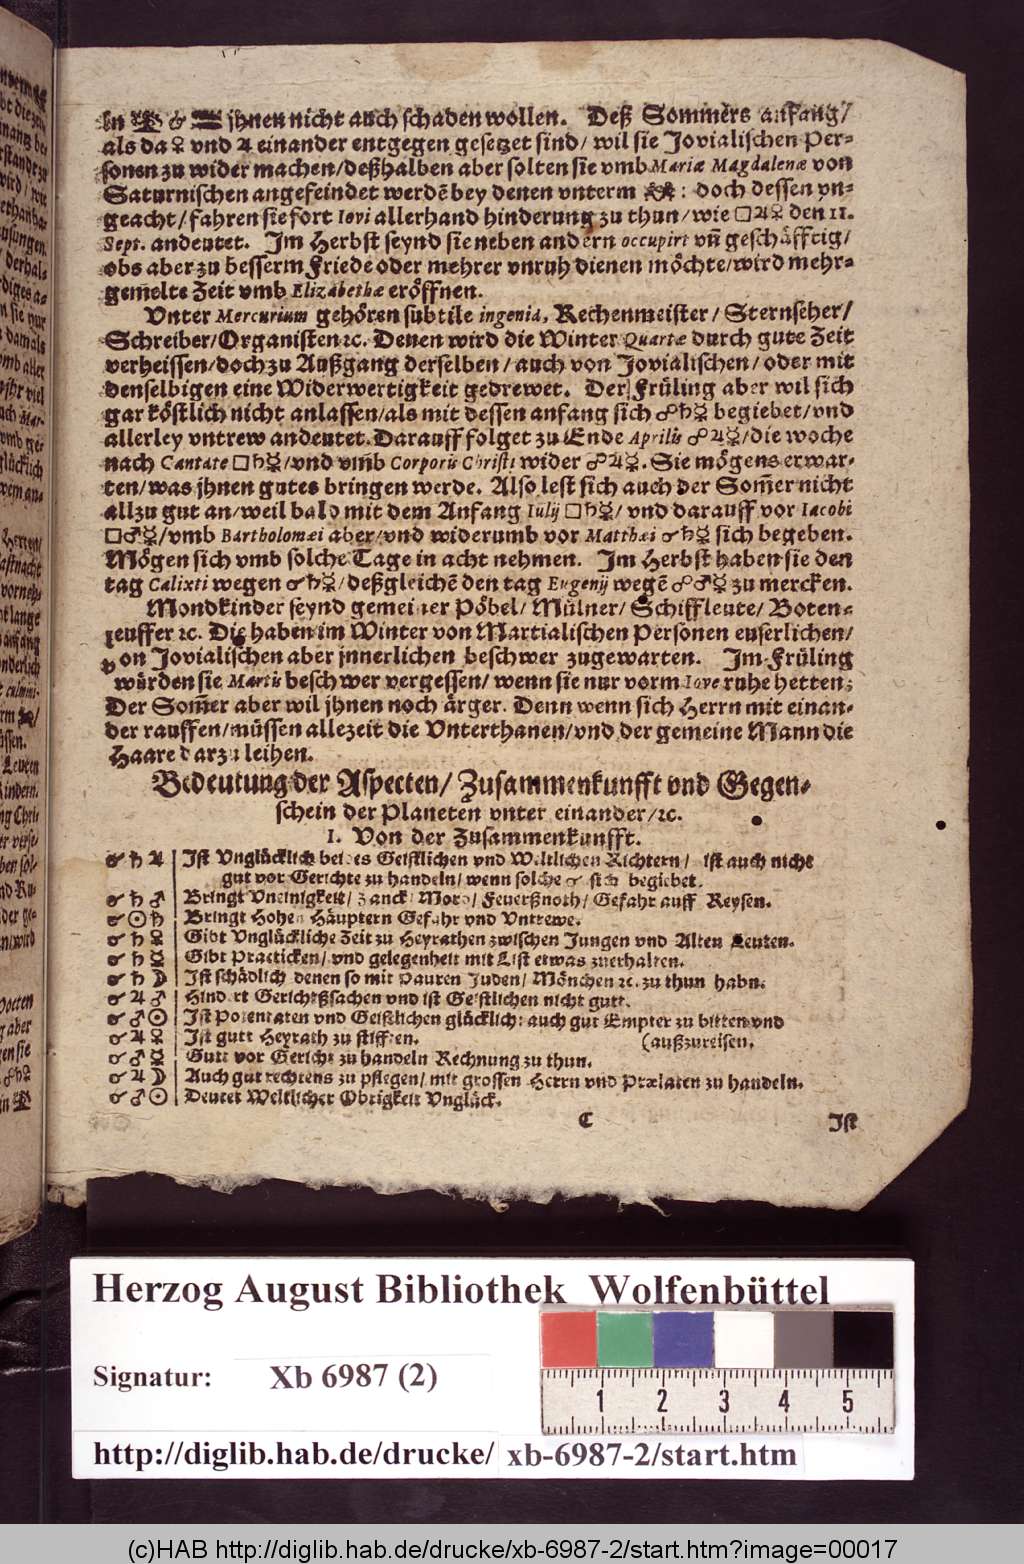 In ♎ ☍ ♒ jhnen nicht auch schaden wollen. Deß Sommers anfang/
als da ♀ vnd ♃ einander entgegen gesetzet sind/ wil sie Jovialischen Per-
sonen zu wider machen/deßhalben aber solten sie vmb Mariæ Magdalenæ von
Saturnischen angefeindet werdē bey denen vnterm : doch dessen vn-
geacht/fahren sie fort Iovi allerhand hinderung zu thun/wie □♃♀ den 11.
Sept. andeutet. Im Herbst seynd sie neben andern occupirt vn̄ geschäfftig/
obs aber zu besserm Friede oder mehrer vnruh dienen möchte/wird mehr-
gem̄elte Zeit vmb Elizabethæ eröffnen.
Vnter Mercurium gehören subtile ingenia, Rechenmeister/ Sternseher/
Schreiber/Organisten ꝛc. Denen wird die Winter Quartæ durch gute Zeit
verheissen/doch zu Außgang derselben/auch von Jovialischen/oder mit
denselbigen eine Widerwertigkeit gedrewet. Der Früling aber wil sich
gar köstlich nicht anlassen/als mit dessen anfang sich ☍♄☿ begiebet/vnd
allerley vntrew andeutet. Darauff folget zu Ende Aprilis ☍♃☿/die woche
nach Cantate □♄☿/vnd vm̄b Corporis Christi wider ☍♃☿. Sie mögens erwar-
ten/was jhnen gutes bringen werde. Also lest sich auch der Som̄er nicht
allzu gut an/weil bald mit dem Anfang Iulij □♄☿/ vnd darauff vor Iacobi
□♂☿/vmb Bartholomæi aber/vnd widerumb vor Matthæi ☌♄☿ sich begeben.
Mögen sich vmb solche Tage in acht nehmen. Im Herbst haben sie den
tag Calixti wegen ☌♄☿/deßgleichē den tag Eugenij wegē ☍♂☿ zu mercken.
Mondkinder seynd gemeiner Pöbel/ Mülner/ Schiffleute/ Boten-
leuffer ꝛc. Die haben im Winter von Martialischen Personen euserlichen/
von Jovialischen aber jnnerlichen beschwer zugewarten. Im Früling
würden sie Martis beschwer vergessen/ wenn sie nur vorm Iove ruhe hetten;
Der Som̄er aber wil jhnen noch ärger. Denn wenn sich Herrn mit einan-
der rauffen/müssen allezeit die Vnterthanen/vnd der gemeine Mann die
Haare darzu leihen.
Bedeutung der Aspecten/ Zusammenkunfft vnd Gegen-
schein der Planeten vnter einander/ꝛc.
I. Von der Zusammenkunfft.
☌ ♄ ♃ Ist Vnglücklich beydes Geistlichen vnd Weltlichen Richtern/ ist auch nicht
gut vor Gerichte zu handeln/wenn solche ☌ sich begiebet.
☌ ♄ ♂ Bringt Vneinigkeit/ Zanck/ Mord/ Feuerßnoth/ Gefahr auff Reysen.
☌ ☉ ♄ Bringt Hohen Häuptern Gefahr vnd Vntrewe.
☌ ♄ ♀ Gibt Vnglückliche Zeit zu Heyrathen zwischen Jungen vnd Alten Leuten.
☌ ♄ ☿ Gibt Practicken/ vnd gelegenheit mit List etwas zuerhalten.
☌ ♄ ☽ Ist schädlich denen so mit Pauren Juden/ Mönchen ꝛc. zu thun habn.
☌ ♃ ♂ Hindert Gerichtßsachen vnd ist Geistlichen nicht gutt.
☌ ♂ ☉ Ist Potentaten vnd Geistlichen glücklich: auch gut Empter zu bitten vnd
☌ ♃ ♀ Ist gutt Heyrath zu stifften. (außzureisen.
☌ ♂ ☿ Gutt vor Gericht zu handeln Rechnung zu thun.
☌ ♃ ☽ Auch gut rechtens zu pflegen/ mit grossen Herrn vnd Prælaten zu handeln.
☌ ♂ ☉ Deutet Weltlicher Obrigkeit Vnglück.
C Ist
Herzog August Bibliothek Wolfenbüttel
Signatur: Xb 6987 (2)
1 2 3 4 5
http://diglib.hab.de/drucke/ xb-6987-2/start.htm
(c)HAB http://diglib.hab.de/drucke/xb-6987-2/start.htm?image=00017